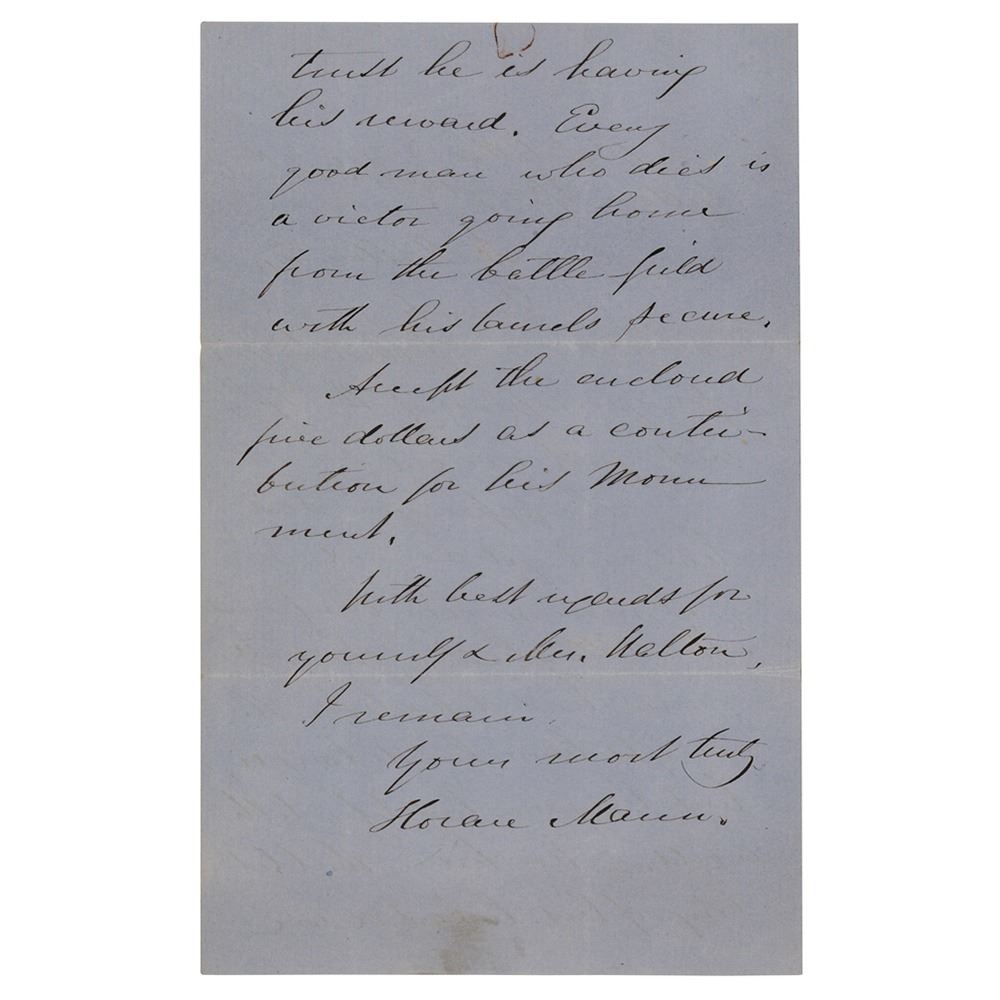 trust he is having
his reward. Every
good man who dies is
a victor going home
from the battle-field
with his laurels secure.
Accept the enclosed
five dollars as a contri-
bution for his Monu-
ment.
With best regards for
yourself & Mrs. Walton,
I remain
Yours most truly
Horace Mann.